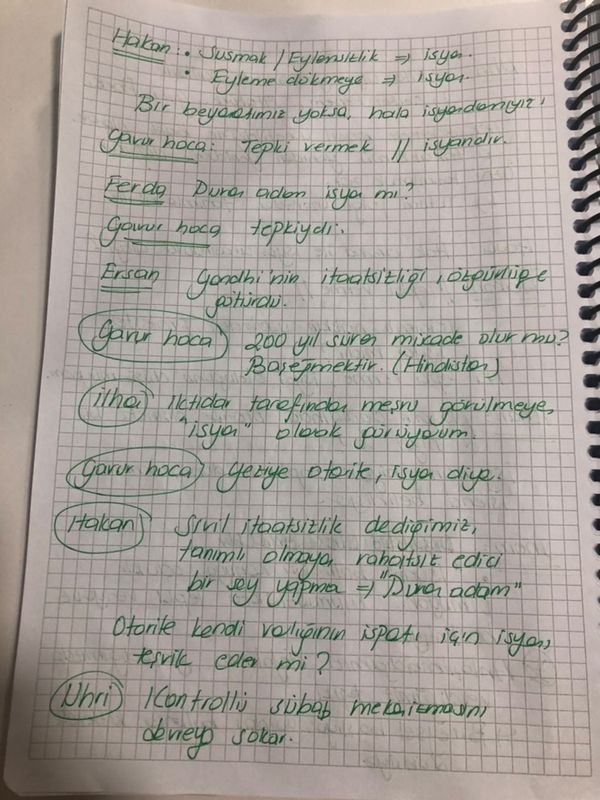 Hakan: • Susmak / Eylemsizlik ⇒ isyan.
• Eyleme dökmeye ⇒ isyan.
Bir beyanatımız yoksa, hala isyandamıyız?
Gavur hoca: Tepki vermek // isyandır.
Ferda Duran adam isyan mı?
Gavur hoca tepkiydi.
Ersan Gandhi'nin itaatsizliği, özgürlüğe
götürdü.
Gavur hoca 200 yıl süren mücade olur mu?
Başeğmektir. (Hindistan)
ilhan iktidar tarafından meşru görülmeye,
"isyan" olarak görüyorum.
Gavur hoca geziye otorite, isyan diyo.
Hakan Sivil itaatsizlik dediğimiz,
tanımlı olmayan rahatsız edici
bir şey yapma ⇒ "Duran adam"
Otorite kendi varlığının ispatı için isyanı
teşvik eder mi?
Uhri Kontrollü sübap mekanizmasını
devreye sokar.